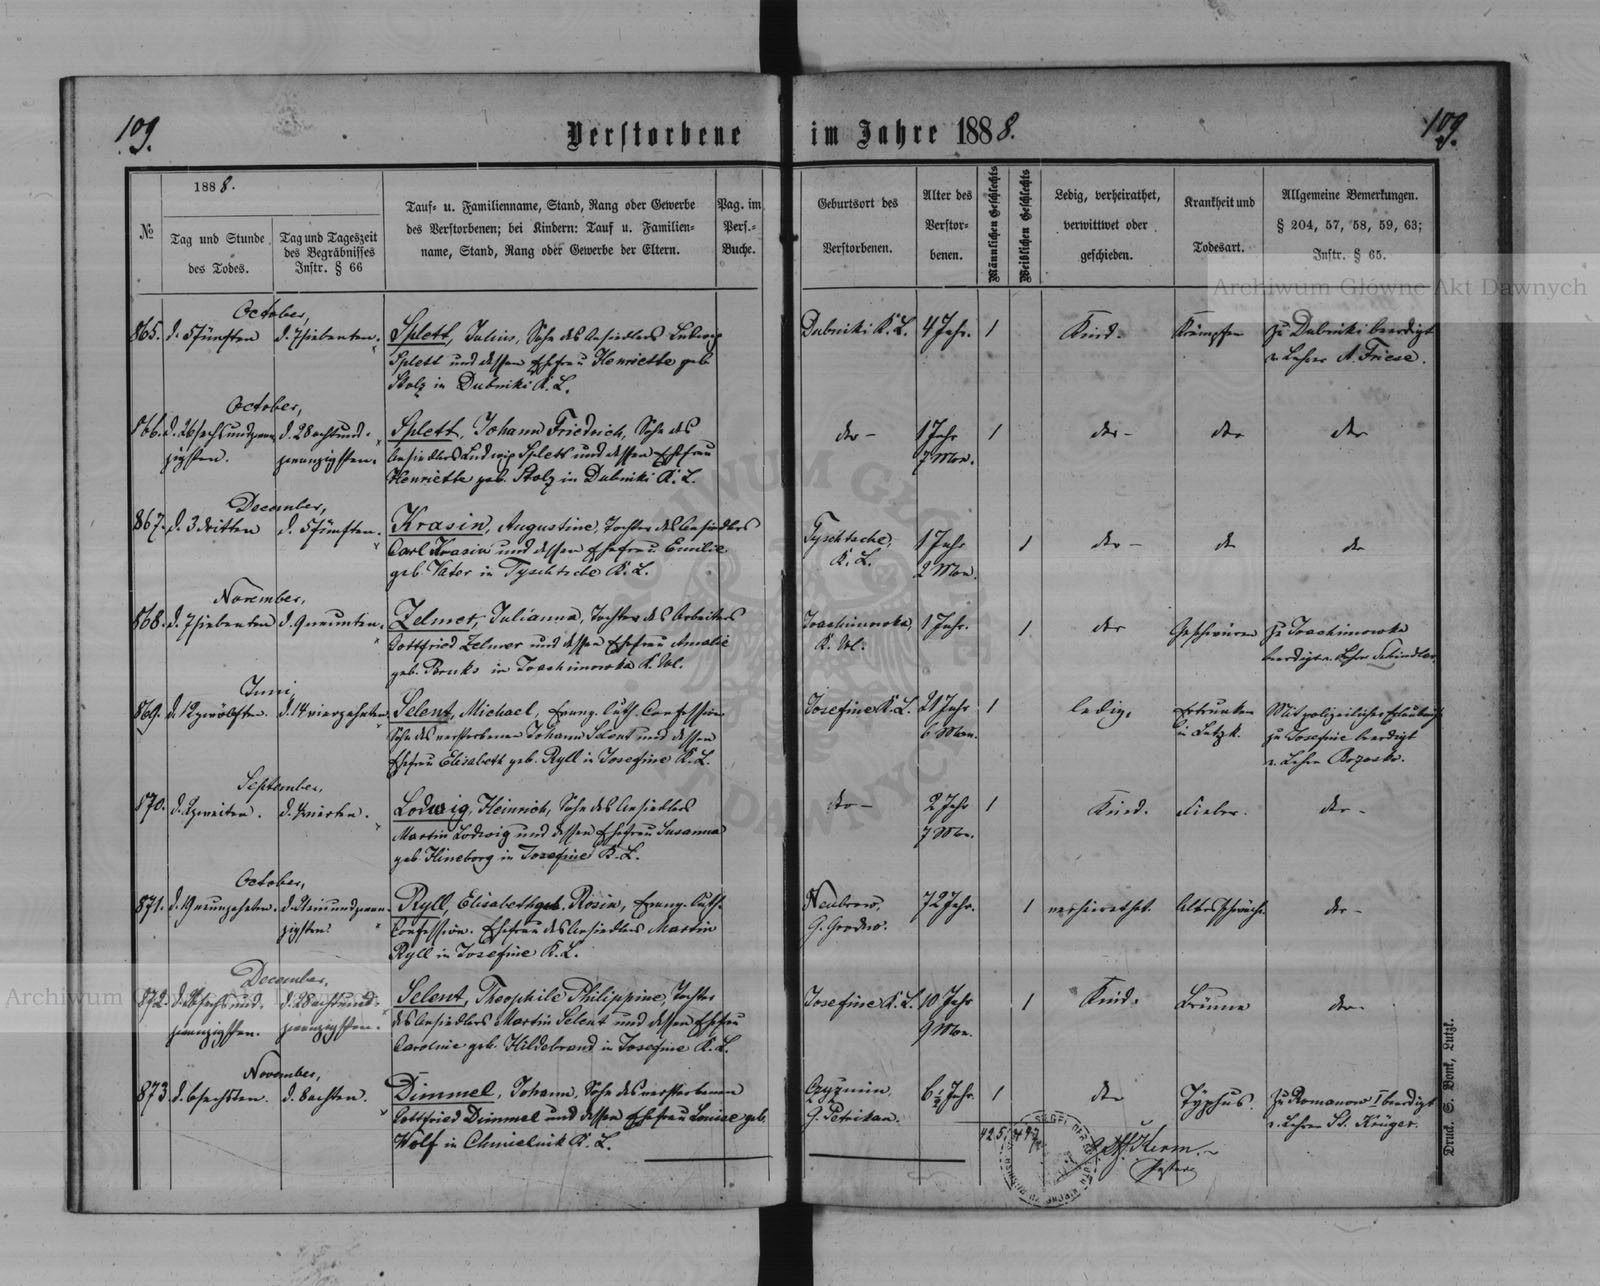 109.
Verstorbene im Jahre 1888.
109.
№
1888.
Tag und Stunde
des Todes.
Tag und Tageszeit
des Begräbnisses
Instr. § 66
Tauf- u. Familienname, Stand, Rang oder Gewerbe
des Verstorbenen; bei Kindern: Tauf u. Familien-
name, Stand, Rang oder Gewerbe der Eltern.
Pag. im
Pers.-
Buche.
Geburtsort des
Verstorbenen.
Alter des
Verstor-
benen.
Männlichen Geschlechts
Weiblichen Geschlechts
Ledig, verheirathet,
verwittwet oder
geschieden.
Krankheit und
Todesart.
Allgemeine Bemerkungen.
§ 204, 57, 58, 59, 63;
Instr. § 65.
October,
865. d. 5 fünften d. 7 siebenten.
Splett, Julius, Sohn des Ansiedlers Ludwig
Splett und dessen Ehefrau Henriette geb.
Stolz in Dubniki K. L.
Dubniki K. L. 4 Jahr. 1 Kind. Krämpfen zu Dubniki beerdigt
v. Lehrer A. Friese.
October,
866. d. 26 sechsundzwan- d. 28 achtund-
zigsten. zwanzigsten.
Splett, Johann Friedrich, Sohn des
Ansiedlers Ludwig Splett und dessen Ehefrau
Henriette geb. Stolz in Dubniki K. L.
dto - 1 Jahr 1 dto - dto dto
7 Mon.
December,
867. d. 3 dritten d. 5 fünften.
Krasin, Augustine, Tochter des Ansiedlers
Carl Krasin und dessen Ehefrau Emilie
geb. Vater in Tyschtsche K. L.
Tyschtsche, 1 Jahr 1 dto - dto dto
K. L. 2 Mon.
November,
868. d. 7 siebenten d. 9 neunten.
Zelmer, Julianna, Tochter des Arbeiters
Gottfried Zelmer und dessen Ehefrau Amalie
geb. Bruks in Joachimowka K. Wl.
Joachimowka, 1 Jahr. 1 dto Geschwüren zu Joachimowka
K. Wl. beerdigt v. Lehrer Schindler.
Juni,
869. d. 12 zwölften. d. 14 vierzehnten
Selent, Michael, Evang. Luth. Confession
Sohn des verstorbenen Johann Selent und dessen
Ehefrau Elisabeth geb. Ryll in Josefine K. L.
Josefine K. L. 21 Jahr 1 ledig. Ertrunken Mit polizeilicher Erlaubniß
6 Mon. in Lutzk. zu Josefine beerdigt
v. Lehrer
September,
870. d. 2 zweiten. d. 4 vierten.
Lodwig, Heinrich, Sohn des Ansiedlers
Martin Lodwig und dessen Ehefrau Susanna
geb. Hineborg in Josefine K. L.
dto - 2 Jahr 1 Kind. Fieber. dto -
7 Mon.
October,
871. d. 19 neunzehnten. d. 21 einundzwan-
zigsten.
Ryll, Elisabeth geb. Rosin, Evang. Luth.
Confession. Ehefrau des Ansiedlers Martin
Ryll in Josefine K. L.
Neubrow, 72 Jahr. 1 verheirathet. Altersschwäche. dto -
G. Grodno.
December,
872. d. 26 sechsund- d. 28 achtund-
zwanzigsten. zwanzigsten.
Selent, Theophile Philippine, Tochter
des Ansiedlers Martin Selent und dessen Ehefrau
Caroline geb. Hildebrand in Josefine K. L.
Josefine K. L. 10 Jahr 1 Kind. Bräune dto
9 Mon.
November,
873. d. 6 sechsten. d. 8 achten.
Dimmel, Johann, Sohn des verstorbenen
Gottfried Dimmel und dessen Ehefrau Louise geb.
Wolf in Chmielnik K. L.
Czyzmin, 6½ Jahr. 1 dto Typhus. zu Romanow I beerdigt
G. Petrikau. v. Lehrer St. Krüger.
425
Pastor
Druck. S. Bonk, Lutzk.
Archiwum Główne Akt Dawnych